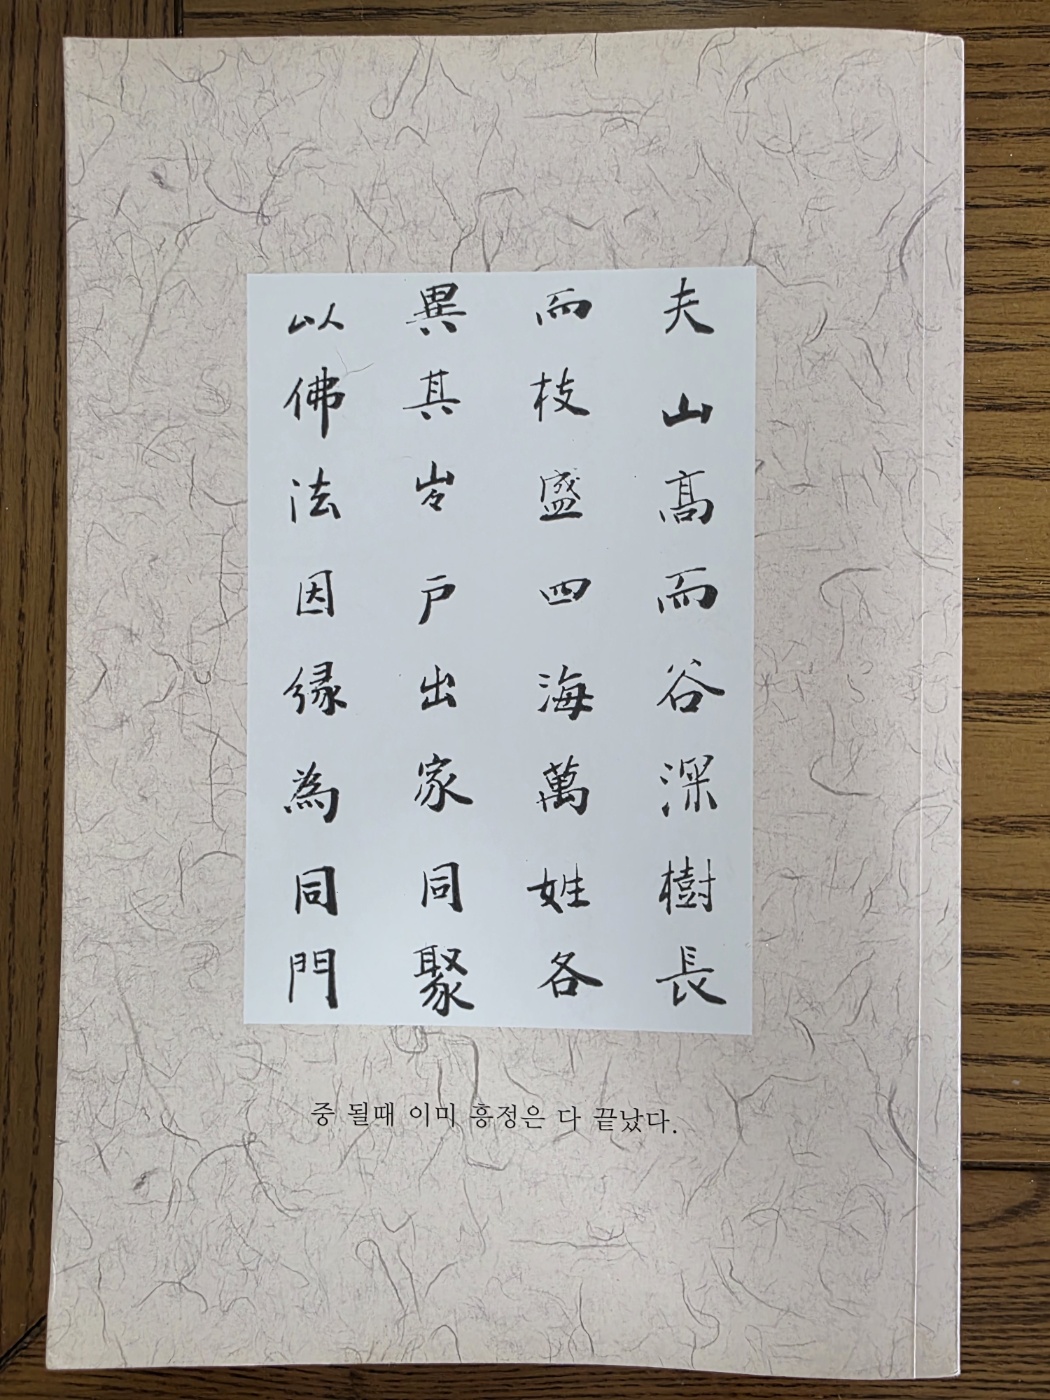 夫山髙而谷深樹長
而枝盛四海萬姓各
異其戶出家同聚
以佛法因縁為同門
중 될때 이미 흥정은 다 끝났다.